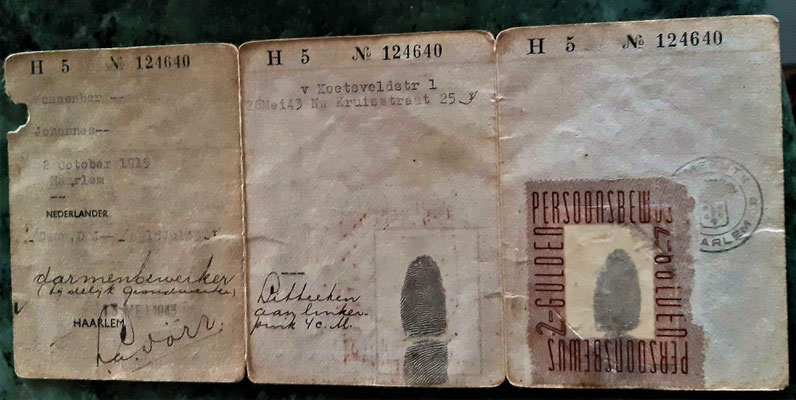 H 5 № 124640
Johannes--
2 October 1915
Haarlem
--
NEDERLANDER
darmenbewerker
(tijdelijk grondwerker)
MEI 1943
HAARLEM
H 5 № 124640
v Koetsveldstr 1
26Mei43 Nw Kruisstraat 25
Litteeken
aan linker
pink 4 c.M.
H 5 № 124640
HAARLEM
PERSOONSBEWIJS
2-GULDEN
2-GULDEN
PERSOONSBEWIJS